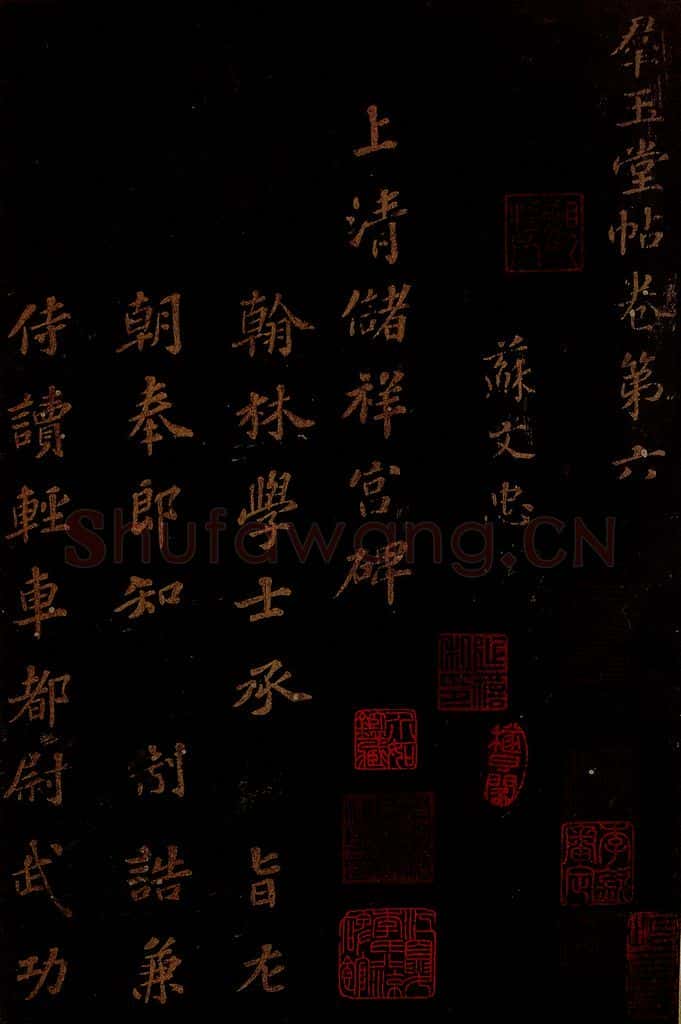 羣玉堂帖卷第六
蘇文忠
上清儲祥宮碑
翰林學士承 旨左
朝奉郎知 制誥兼
侍讀輕車都尉武功
Shufawang.CN